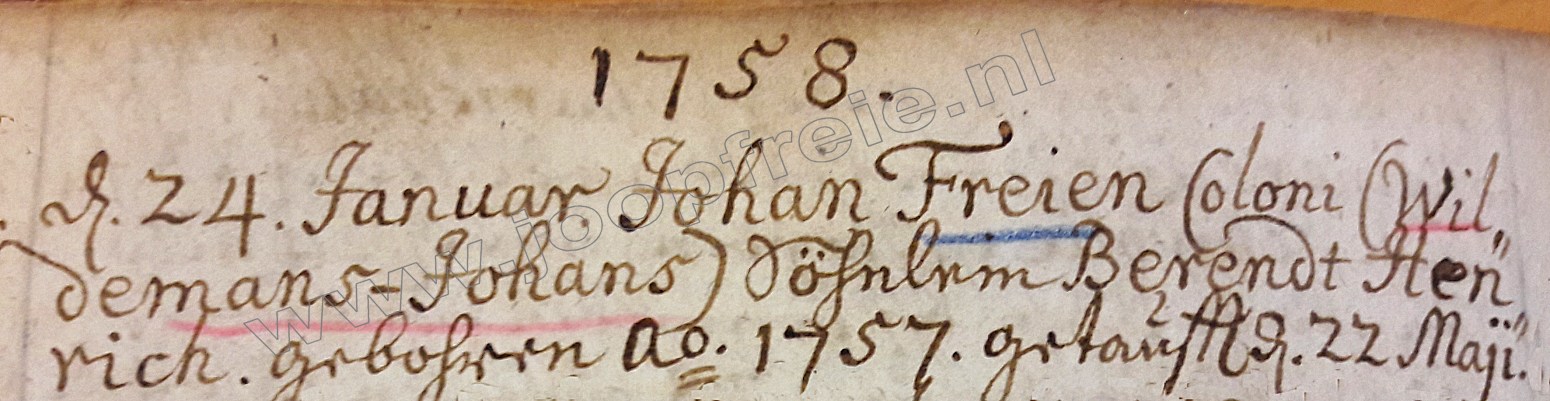 1758.
d. 24. Januar Johan Freien Coloni (Wil„
demans-Johans) Söhnlein Berendt Hen„
rich. gebohren Ao. 1757. getaufft d. 22 Maji.
www.joopfreie.nl